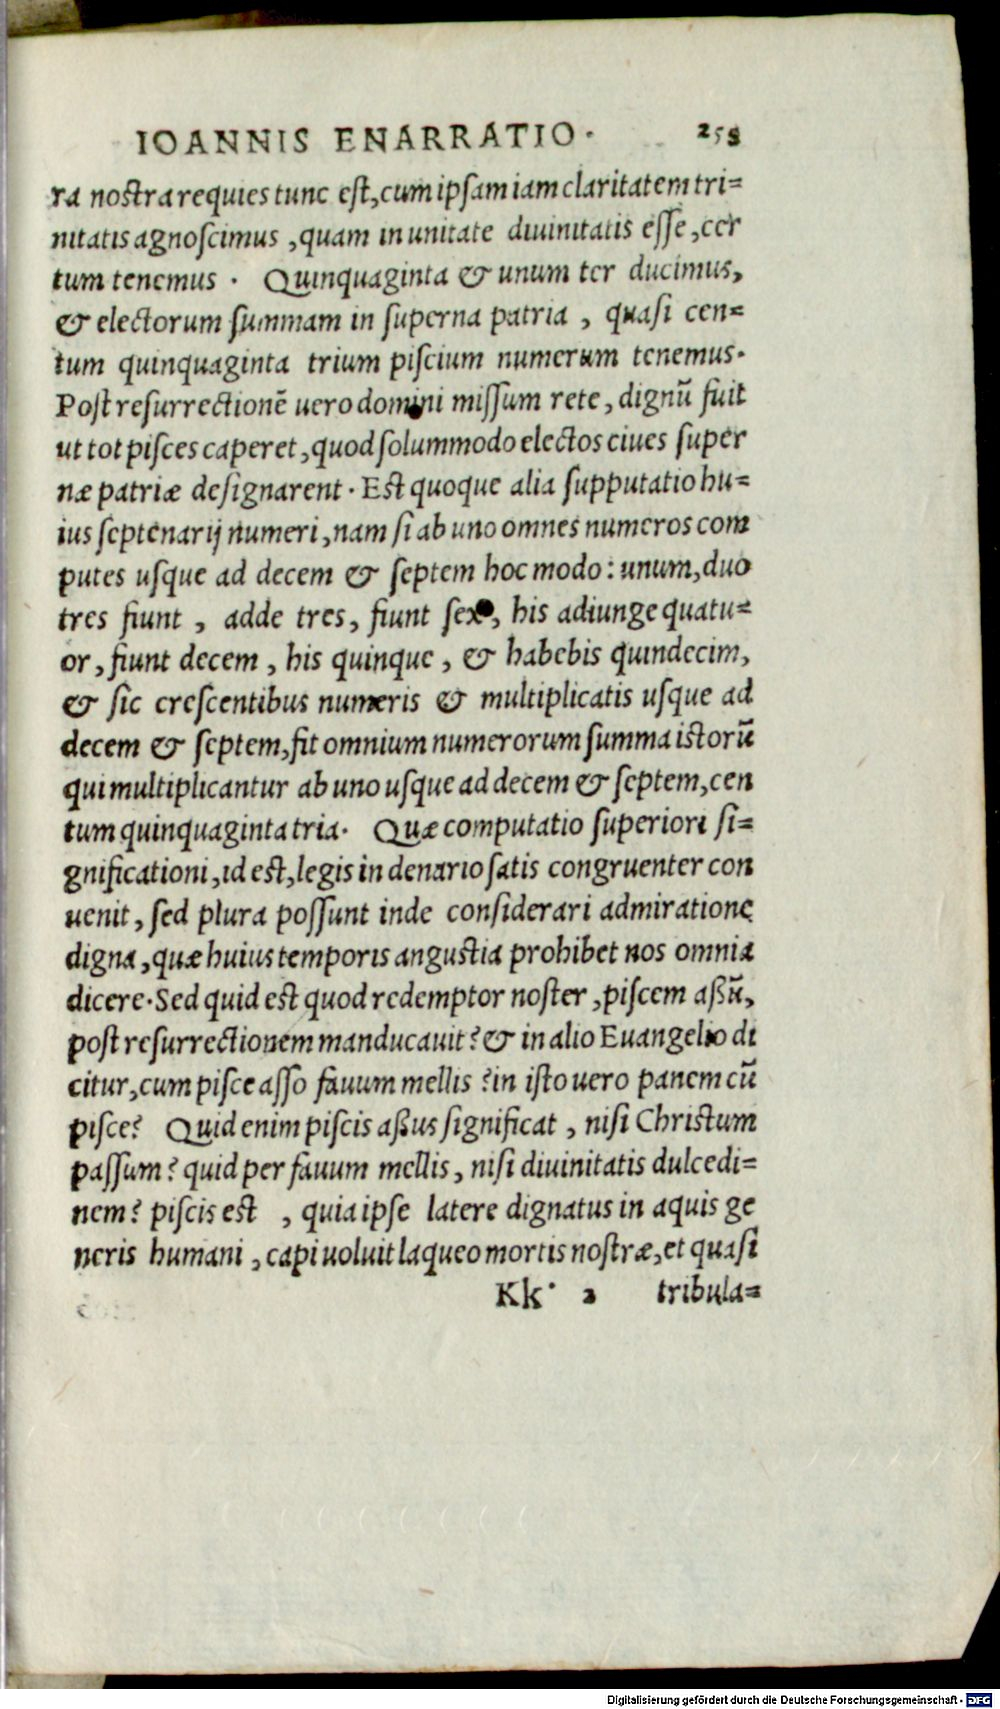 IOANNIS ENARRATIO. 258
ra nostra requies tunc est, cum ipsam iam claritatem tri=
nitatis agnoscimus, quam in unitate diuinitatis esse, cer
tum tenemus. Quinquaginta & unum ter ducimus,
& electorum summam in superna patria, quasi cen=
tum quinquaginta trium piscium numerum tenemus.
Post resurrectionē uero domini missum rete, dignū fuit
ut tot pisces caperet, quod solummodo electos ciues super
næ patriæ designarent. Est quoque alia supputatio hu=
ius septenarij numeri, nam si ab uno omnes numeros com
putes usque ad decem & septem hoc modo: unum, duo
tres fiunt, adde tres, fiunt sex, his adiunge quatu=
or, fiunt decem, his quinque, & habebis quindecim,
& sic crescentibus numeris & multiplicatis usque ad
decem & septem, fit omnium numerorum summa istorū
qui multiplicantur ab uno usque ad decem & septem, cen
tum quinquaginta tria. Quæ computatio superiori si=
gnificationi, id est, legis in denario satis congruenter con
uenit, sed plura possunt inde considerari admiratione
digna, quæ huius temporis angustia prohibet nos omnia
dicere. Sed quid est quod redemptor noster, piscem aßū,
post resurrectionem manducauit? & in alio Euangelio di
citur, cum pisce asso fauum mellis? in isto uero panem cū
pisce? Quid enim piscis aßus significat, nisi Christum
passum? quid per fauum mellis, nisi diuinitatis dulcedi=
nem? piscis est, quia ipse latere dignatus in aquis ge
neris humani, capi uoluit laqueo mortis nostræ, et quasi
Kk. 2 tribula=
Digitalisierung gefördert durch die Deutsche Forschungsgemeinschaft - DFG